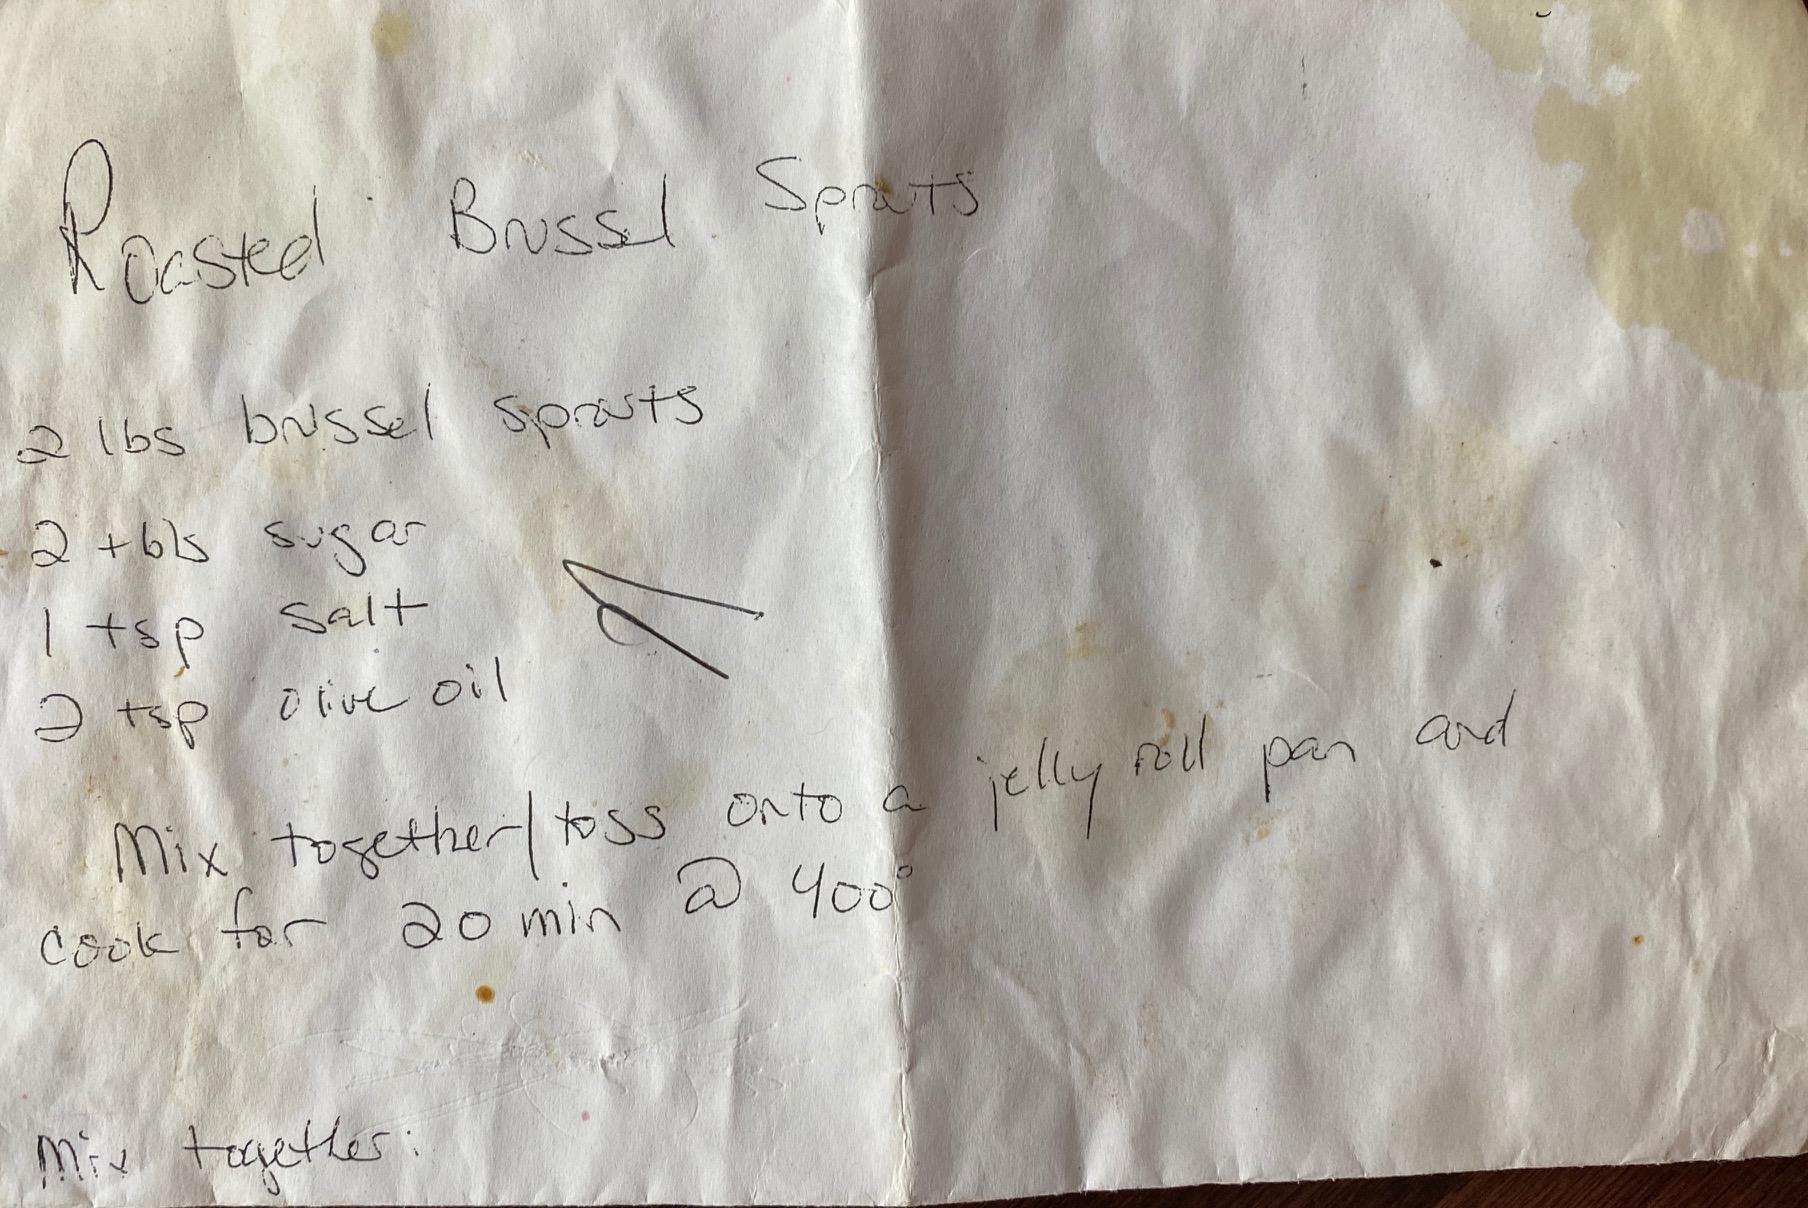 Roasted Brussel Sprouts
2 lbs brussel sprouts
2 tbls sugar
1 tsp salt
2 tsp olive oil
Mix together/toss onto a jelly roll pan and
cook for 20 min @ 400°
Mix together: